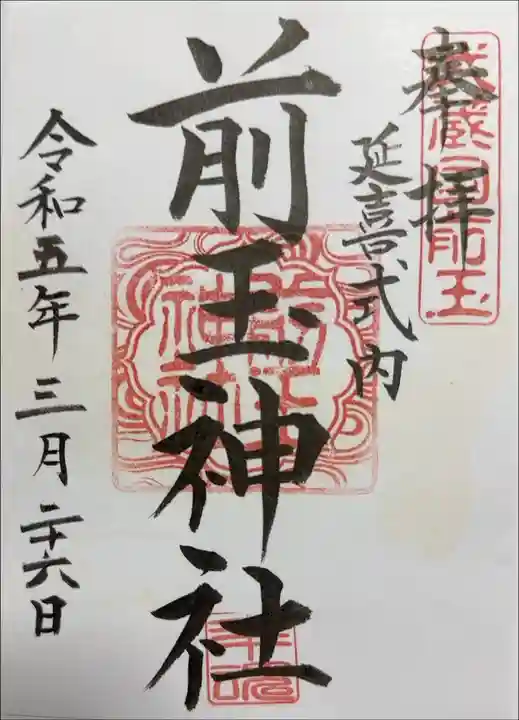 奉拝
武蔵国前玉
延喜式内
前玉神社
前玉神社
幸魂
令和五年三月二十六日